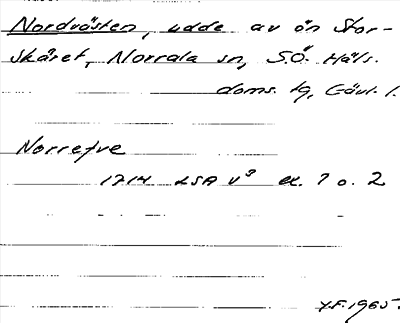 Nordvästen, udde av ön Stor-
skäret, Norrala sn, S.Ö. Häls.
doms. tg, Gävl. l.
Norrefve
1714 LSA V³ ex. 1 o. 2
Y.F. 1965.